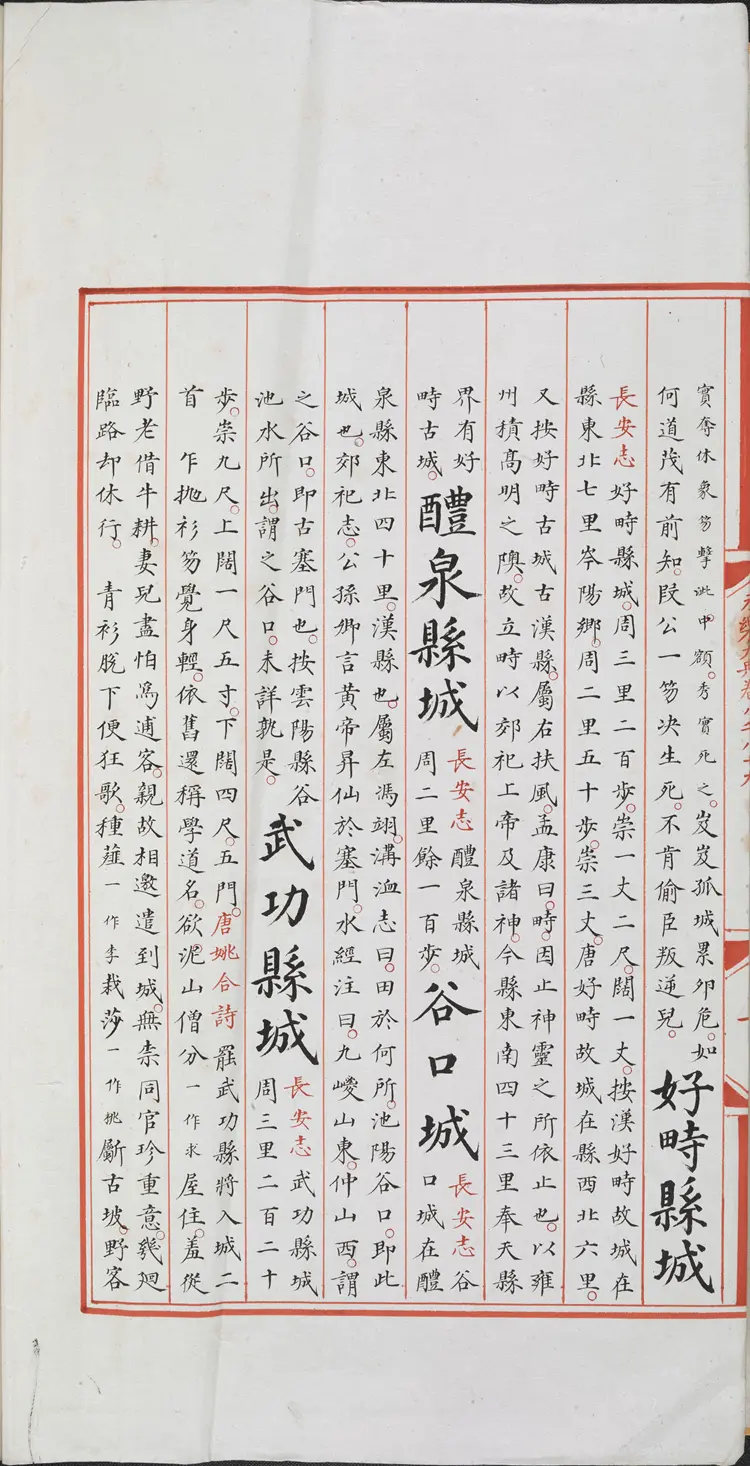 實奪休象笏擊泚中額。秀實死之。岌岌孤城累卵危。如
何道茂有前知。段公一笏决生死。不肯偷臣叛逆兒。
好畤縣城
長安志好時縣城。周三里二百步。崇一丈二尺。闊一丈。按漢好時故城在
縣東北七里岑陽鄉。周二里五十步。崇三丈。唐好時故城在縣西北六里。
又按好時古城古漢縣。屬右扶風。孟康曰。時。因止神靈之所依止也。以雍
州積高明之隩。故立時以郊祀上帝及諸神。今縣東南四十三里奉天縣
界有好
時古城。
醴泉縣城
長安志醴泉縣城
周二里餘一百步。
谷口城
長安志谷
口城在醴
泉縣東北四十里。漢縣也。屬左馮翊。溝洫志曰。田於何所。池陽谷口。即此
城也。郊祀志。公孫卿言黃帝昇仙於塞門。水經注曰。九嵕山東。仲山西。謂
之谷口。即古塞門也。按雲陽縣谷
池水所出。謂之谷口。未詳孰是。
武功縣城
長安志武功縣城
周三里二百二十
步。崇九尺。上闊一尺五寸。下闊四尺。五門。唐姚合詩罷武功縣將入城二
首 乍抛衫笏覺身輕。依舊還稱學道名。欲泥山僧分一作求屋住。羞從
野老借牛耕。妻兒盡怕為逋客。親故相邀遣到城。無柰同官珍重意。幾廻
臨路却休行。 青衫脫下便狂歌。種薤一作李栽莎一作挑斸古坡。野客